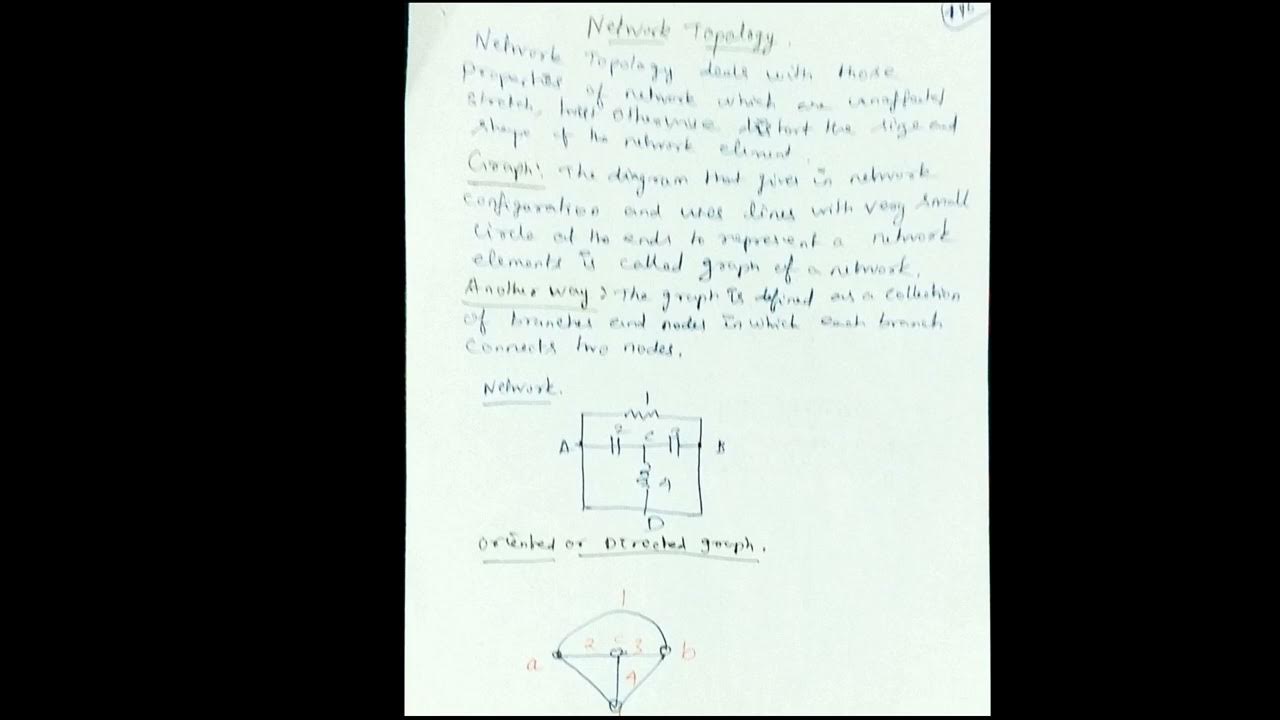 196
Network Topology.
Network Topology deals with those
properties of network which are unaffected
stretch, twist otherwise distort the size and
shape of the network element.
Graph: The diagram that gives in network
configuration and uses lines with very small
circle at the ends to represent a network
elements is called graph of a network.
Another way: The graph is defined as a collection
of branches and nodes in which each branch
connects two nodes.
Network.
1
2 C 3
A B
4
D
Oriented or Directed graph.
1
2 C 3
a b
4